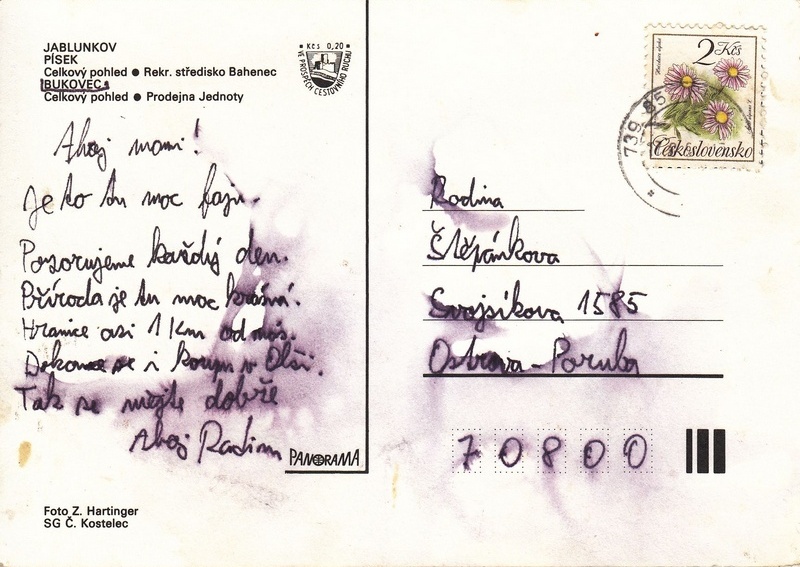 JABLUNKOV
PÍSEK
Celkový pohled ● Rekr. středisko Bahenec
BUKOVEC
Celkový pohled ● Prodejna Jednoty
Kčs 0,20
VE PROSPĚCH CESTOVNÍHO RUCHU
Ahoj mami!
Je to tu moc fajn.
Pozorujeme každý den.
Příroda je tu moc krásná.
Hranice asi 1 Km od nás.
Dokonce se i koupu v Olši.
Tak se mějte dobře
Ahoj Radim
PANORAMA
Foto Z. Hartinger
SG Č. Kostelec
2 Kčs
Československo
739 85
Rodina
Štěpánkova
Svojsíkova 1585
Ostrava-Poruba
70800